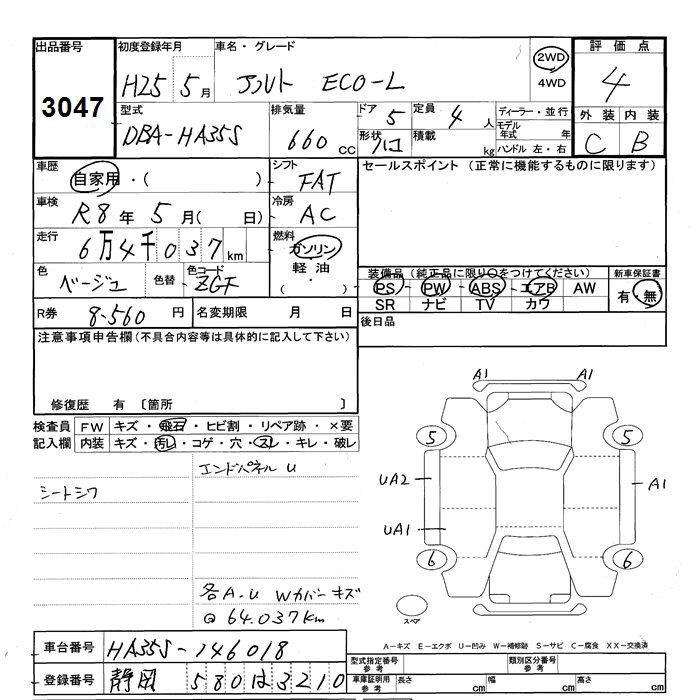 出品番号 初度登録年月 車名・グレード 評価点
3047 H25 5月 アルト ECO-L 2WD 4WD 4
型式 排気量 ドア 5 定員 4人 ディーラー・並行 外装 内装
DBA-HA35S 660cc 形状 ハコ 積載 kg モデル年式 年 ハンドル 左・右 C B
車歴 自家用・( ) シフト FAT セールスポイント (正常に機能するものに限ります)
車検 R8年 5月( 日) 冷房 AC
走行 6万4千037km 燃料 ガソリン
色 ベージュ 色替 色コード ZGF 軽油 ( ・ ) 装備品 (純正品に限り○をつけてください) 新車保証書
PS PW ABS エアB AW 有・無
R券 8-560円 名変期限 月 日 SR ナビ TV カワ
注意事項申告欄(不具合内容等は具体的に記入して下さい) 後日品
修復歴 有 [箇所 ]
検査員 FW キズ・飛石・ヒビ割・リペア跡・×要
記入欄 内装 キズ・汚レ・コゲ・穴・スレ・キレ・破レ
エンドパネル U
シートシワ
各A.U Wカバーキズ
@ 64.037km
A1 A1
5 5
UA2 A1
UA1
6 6
スペア
A-キズ E-エクボ U-凹み W-補修跡 S-サビ C-腐食 XX-交換済
車台番号 HA35S-146018 型式指定番号 参考 類別区分番号 参考
登録番号 静岡 580 は 3210 車庫証明用 参考 長さ cm 幅 cm 高さ cm